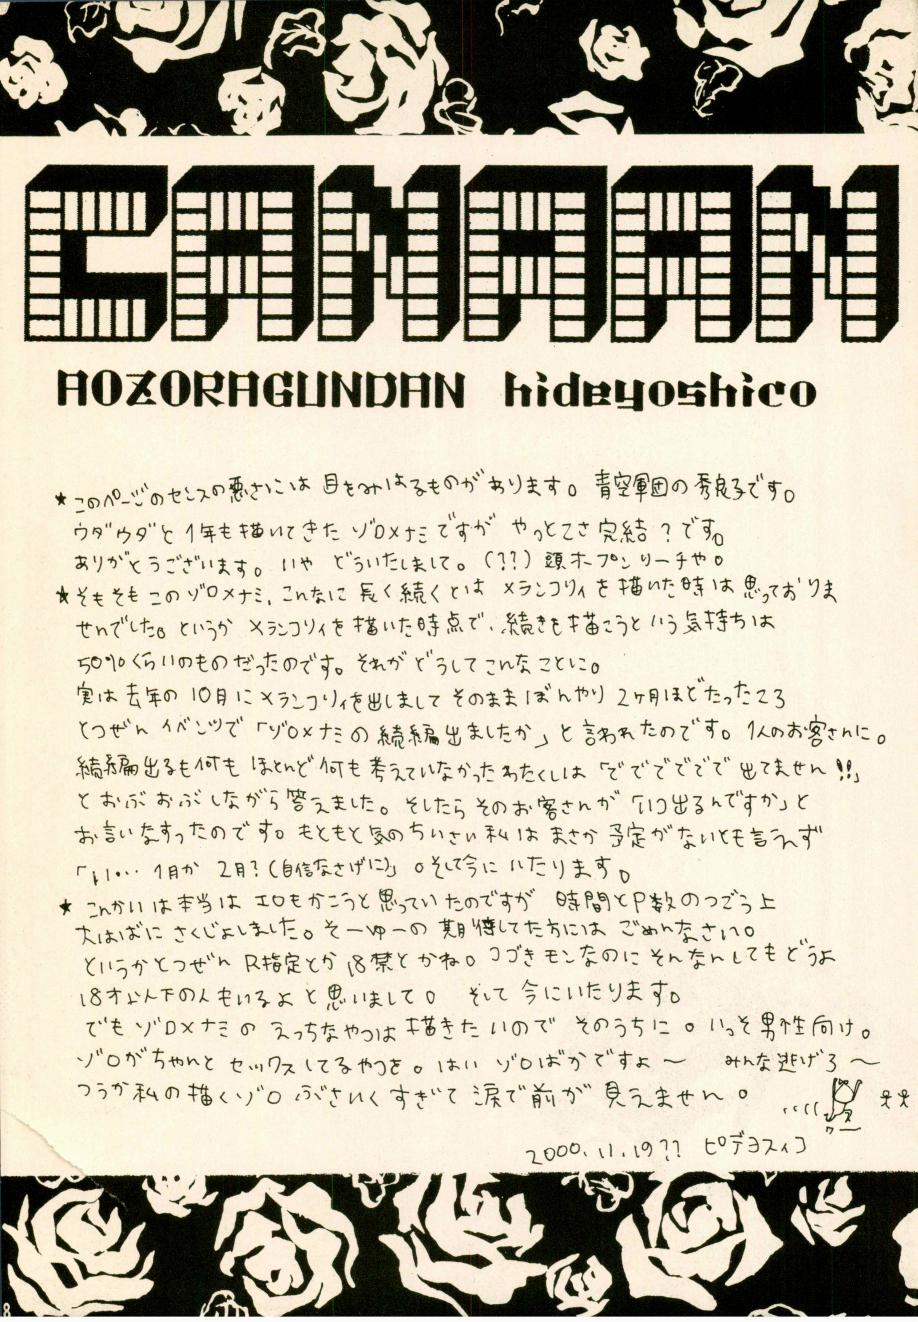 CANAAN
AOZORAGUNDAN hideyoshico
★このページのセンスの悪さには目をみはるものがあります。青空軍団の秀良子です。
ウダウダと1年も描いてきたゾロ×ナミですがやっとこさ完結?です。
ありがとうございます。いやどういたしまして。(??)頭ホープンリーチや。
★そもそもこのゾロ×ナミ、こんなに長く続くとはメランコリィを描いた時は思っておりま
せんでした。というかメランコリィを描いた時点で、続きを描こうという気持ちは
50%くらいのものだったのです。それがどうしてこんなことに。
実は去年の10月にメランコリィを出しましてそのままぼんやり2ヶ月ほどたったころ
とつぜんイベンツで「ゾロ×ナミの続編出ましたか」と言われたのです。1人のお客さんに。
続編出るも何もほとんど何も考えていなかったわたくしは「でででででで出てません!!」
とおぶおぶしながら答えました。そしたらそのお客さんが「いつ出るんですか」と
お言いなすったのです。もともと気のちいさい私はまさか予定がないとも言えず
「い、い… 1月か2月?(自信なさげに)」。そして今にいたります。
★こんかいは本当はエロもかこうと思っていたのですが 時間とP数のつごう上
大はばにさくじょしました。そーゆーの期待してた方にはごめんなさい。
というかとつぜんR指定とか18禁とかね。コゴきモンなのにそんなんしてもどうよ
18才以下の人もいるよと思いまして。そして今にいたります。
でもゾロ×ナミのえっちなやつは描きたいのでそのうちに。いっそ男性向け。
ゾロがちゃんとセックスしてるやつを。はいゾロばかですよ〜 みんな逃げろ〜
つうか私の描くゾロぶさいくすぎて涙で前が見えません。
2000.11.19?? ピデヨスィコ
8